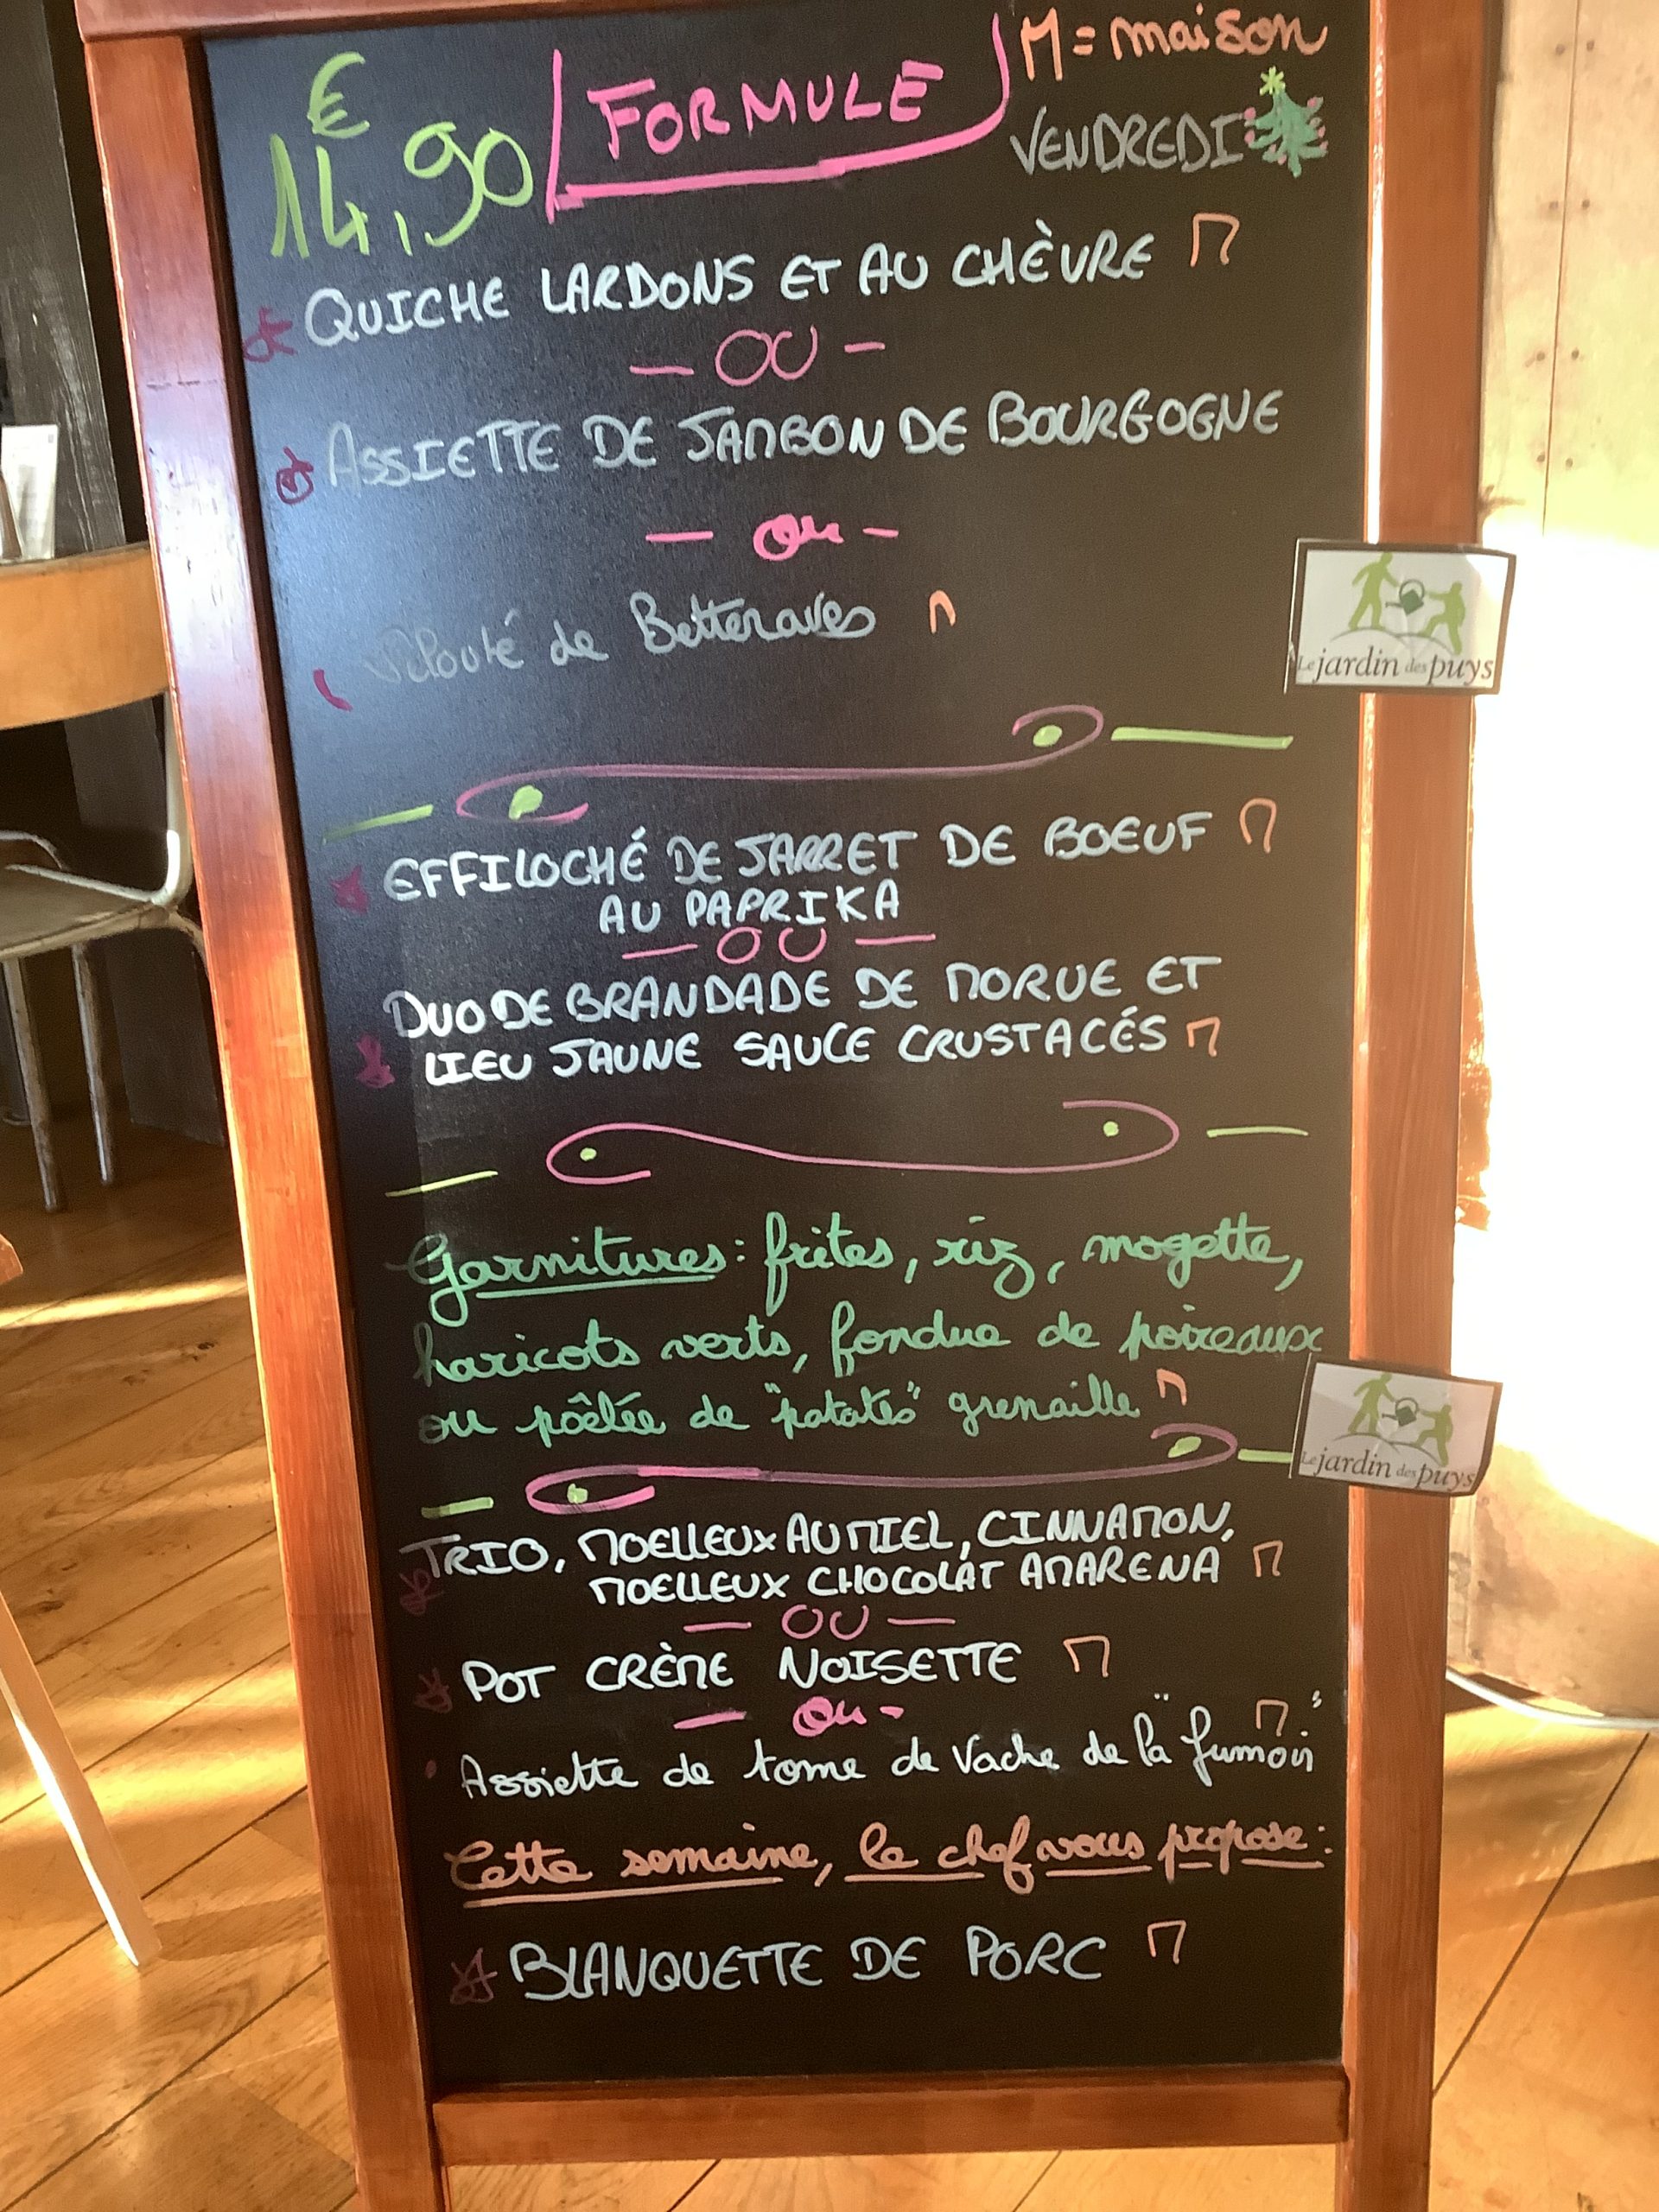 €
14,90 FORMULE M = maison
VENDREDI
QUICHE LARDONS ET AU CHÈVRE M
— OU —
ASSIETTE DE JAMBON DE BOURGOGNE
— ou —
Velouté de Betteraves M
Le jardin des puys
EFFILOCHÉ DE JARRET DE BOEUF M
AU PAPRIKA
— OU —
DUO DE BRANDADE DE MORUE ET
LIEU JAUNE SAUCE CRUSTACÉS M
Garnitures : frites, riz, mogette,
haricots verts, fondue de poireaux
ou poêlée de "patates" grenaille M
Le jardin des puys
TRIO, MOELLEUX AU MIEL, CINNAMON,
MOELLEUX CHOCOLAT AMARENA M
— OU —
POT CRÈME NOISETTE M
— ou —
Assiette de tome de vache de la "fumoir" M
Cette semaine, le chef vous propose :
BLANQUETTE DE PORC M